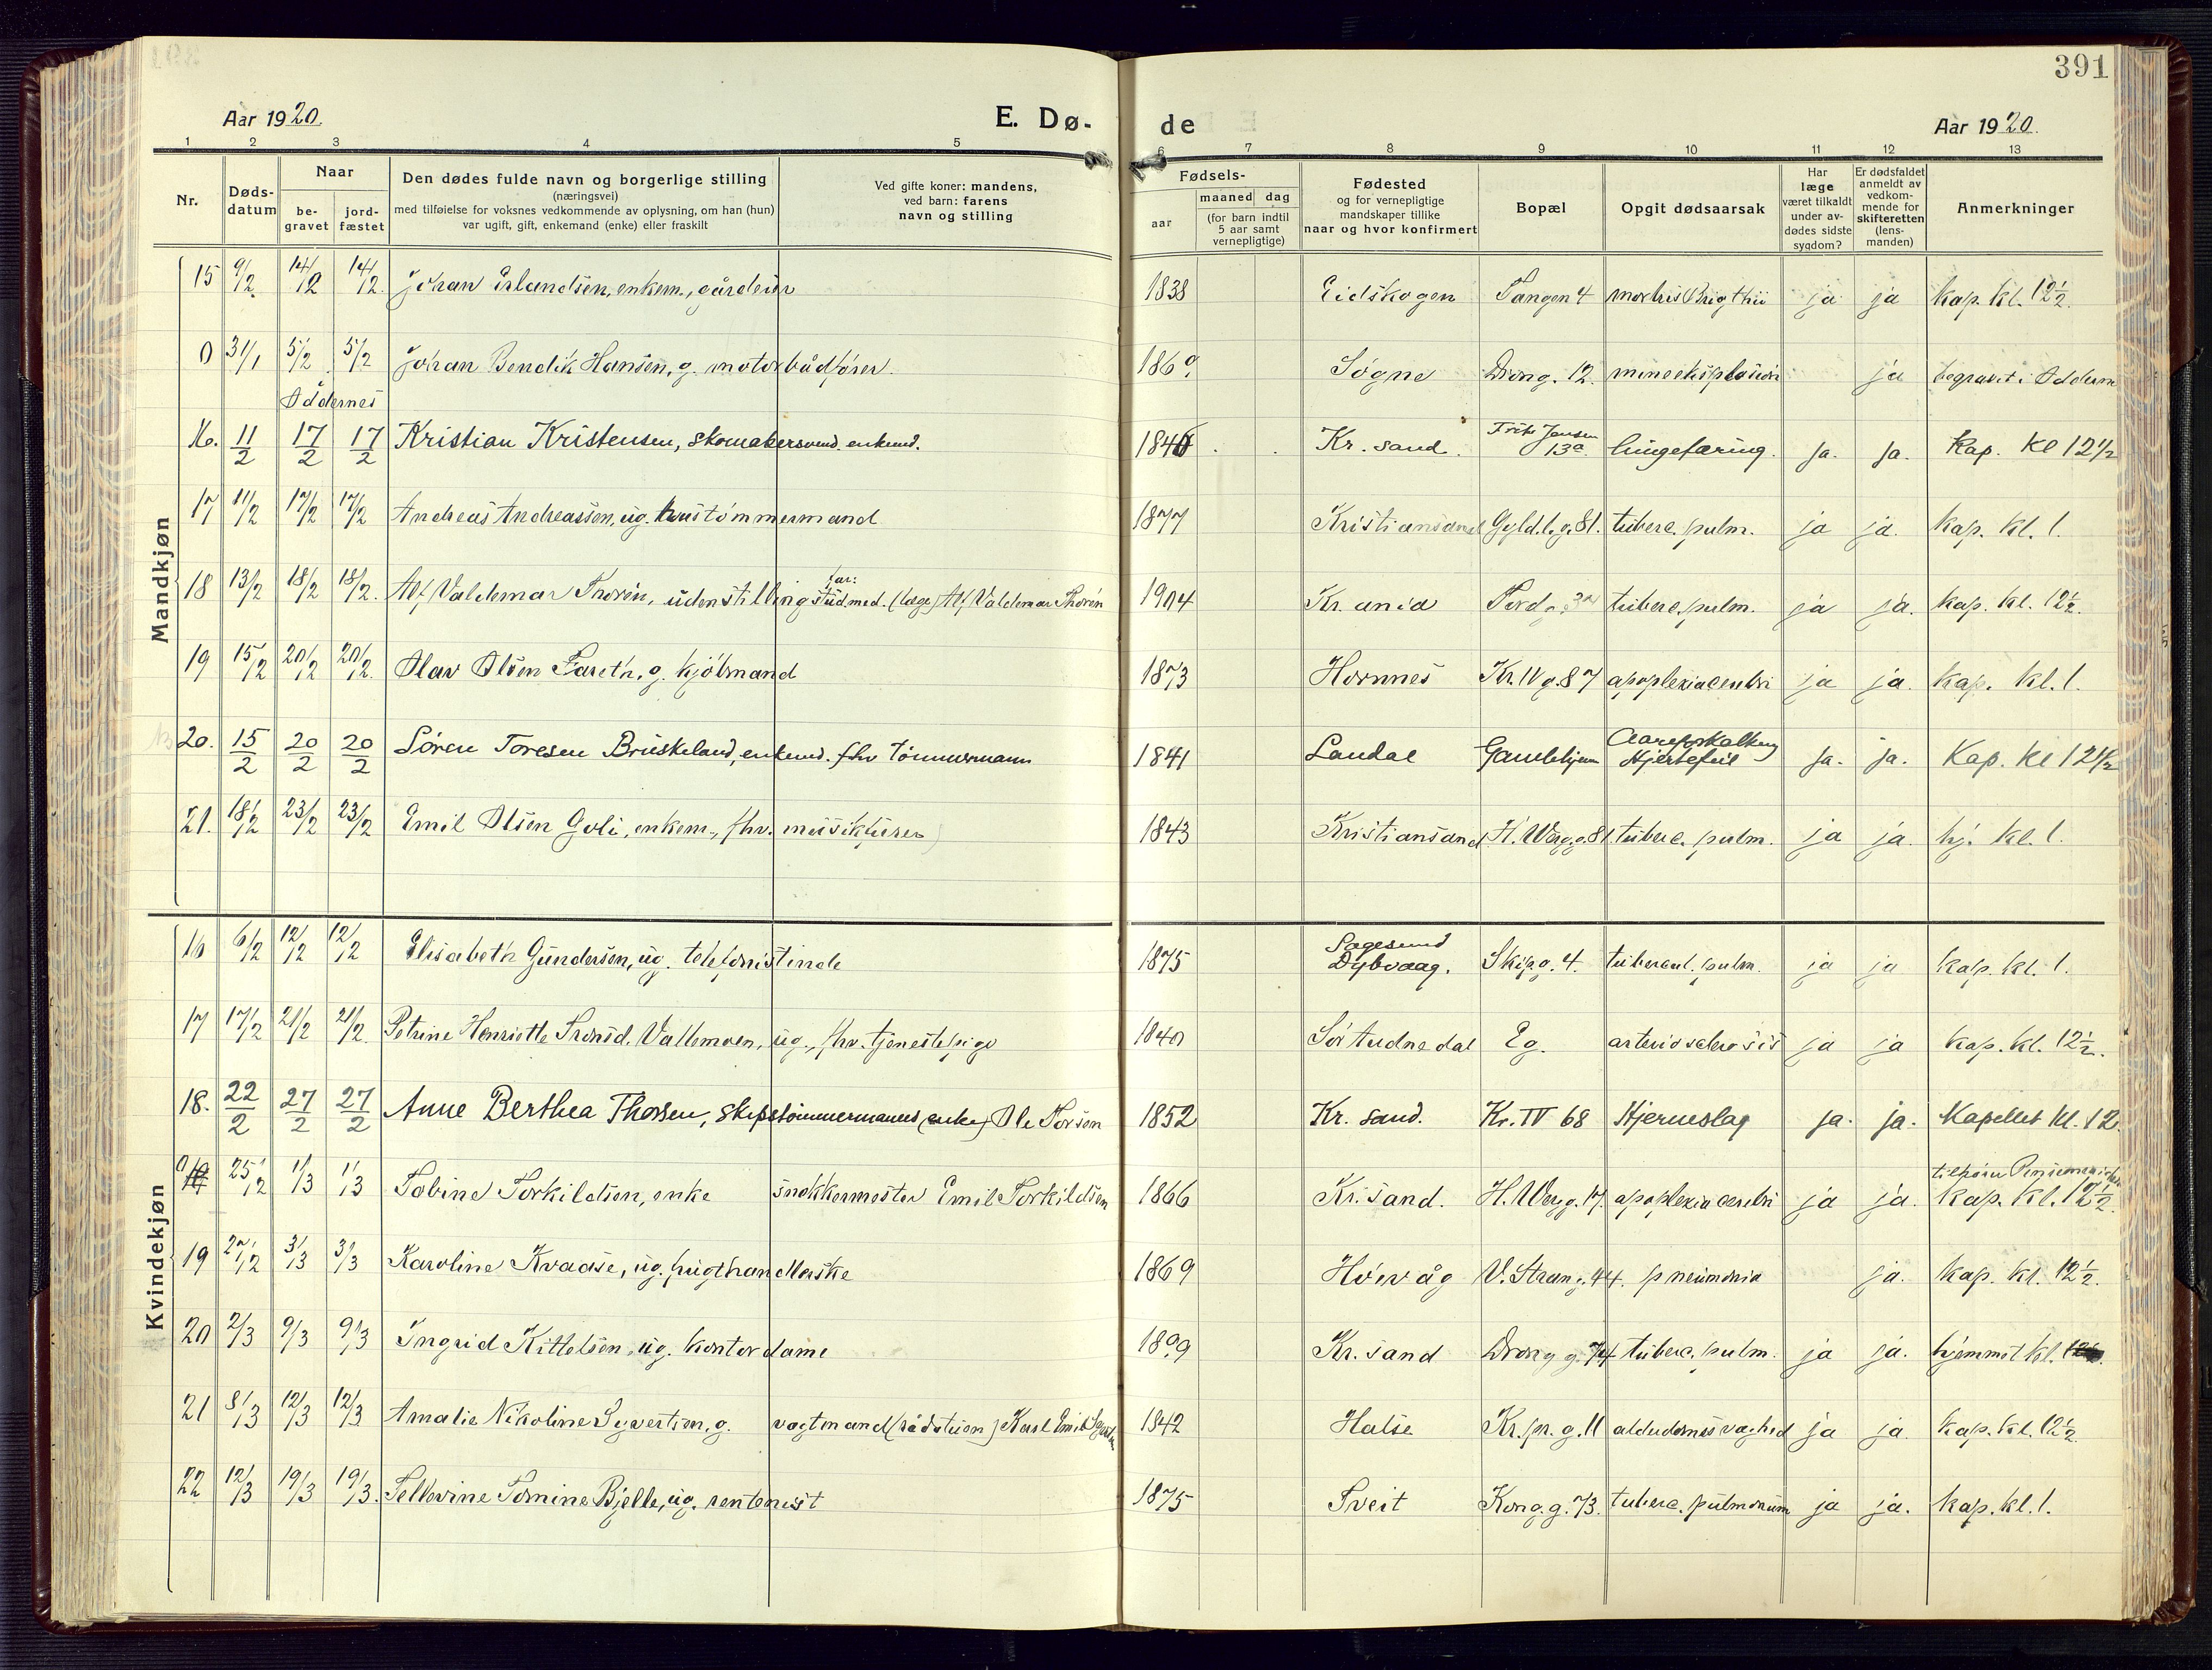 391
Aar 1920. E. Dø- de Aar 1920.
1 2 3 4 5 6 7 8 9 10 11 12 13
Nr. Døds-datum Naar be-gravet jord-fæstet Den dødes fulde navn og borgerlige stilling (næringsvei) med tilføielse for voksnes vedkommende av oplysning, om han (hun) var ugift, gift, enkemand (enke) eller fraskilt Ved gifte koner: mandens, ved barn: farens navn og stilling Fødsels- aar maaned dag (for barn indtil 5 aar samt vernepligtige) Fødested og for vernepligtige mandskaper tillike naar og hvor konfirmert Bopæl Opgit dødsaarsak Har læge været tilkaldt under av-dødes sidste sygdom? Er dødsfaldet anmeldt av vedkom-mende for skifteretten (lens-manden) Anmerkninger
Mandkjøn
15 9/2 14/2 14/2. Johan Erlandsen, enkem., gårdeier 1838 Eidskogen Tangen 4 morbus Brigthii ja ja kap. kl. 12½.
0 31/1 5/2 5/2 Johan Bendik Hansen, g. motorbådfører. 1869 Søgne Drong. 12. mineeksplosion ja begravet i Oddernes
Oddernes
16. 11/2 17/2 17/2 Kristian Kristensen, skomakersvend. enkemd. 1846 Kr. sand. Frits Jensen 13a lungefæring. Ja. Ja. Kap. Kl 12½
17 11/2 17/2 17/2 Andreas Andreassen, ug. hustømmermand 1877 Kristiansand Gyld.l.g. 81. tuberc. pulm. ja ja. kap. kl. 1.
18 13/2 18/2 18/2. Alf Valdemar Thorén, uden stilling far: stud med. (læge) Alf Valdemar Thorén 1904 Kr. ania Tord g. tuberc. pulm. ja ja. kap. kl. 12½.
19 15/2 20/2 20/2. Olav Olsen Fareth, g. kjøbmand 1873 Hornnes Kr. IV g. 87 apoplexia cerebri ja ja. kap. kl. 1.
20. 15/2 20/2 20/2 Søren Toresen Bruskeland, enkemd. fhv Tømmermann 1841 Laudal Gamlehjem Aareforkalkning Hjertefeil Ja. ja. Kap. Kl 12½
21. 18/2 23/2 23/2 Emil Olsen Goli, enkem., fhv. musiklærer 1843 Kristiansand H. Werg.g. 81 tuberc. pulm. ja ja. hj. kl. 1.
Kvindekjøn
16 6/2 12/2 12/2 Elisabeth Gundersen, ug. telefonistinde 1875 Sagesund Dybvaag. Skip.g. 4. tubercul. pulm. ja ja kap. kl. 1.
17 17/2 21/2 21/2. Petrine Henriette Tronsd. Vallemoen, ug., fhv. tjenestepige 1840 Sør Audnedal Eg. arteriosclerosis ja ja kap. kl. 12½.
18. 22/2 27/2 27/2 Anne Berthea Thorsen, skipstømmermanns (enke) Ole Torsen 1852 Kr. sand. Kr. IV 68 Hjerneslag ja. ja. Kapellet kl. 12
25/2 1/3 1/3 Tobine Torkildsen, enke snekkermester Emil Torkildsen 1866 Kr. sand. H. Werg.g. 17. apoplexia cerebri ja ja. kap. kl. 12½.
19 27/2 3/3 3/3 Karoline Kvaase, ug. frugthandlerske 1869 Høvåg V. Strand.g. 44. pneumonia ja. kap. kl. 12½.
20 2/3 9/3 9/3 Ingrid Kittelsen, ug. kontordame 1899 Kr. sand Drong g. 74 tuberc. pulm. ja ja. hjemmet kl.
21 8/3 12/3 12/3 Amalie Nikoline Syvertsen, g. vagtmand (rådstuen) Karl Emil Syvertsen 1842 Halse Kr. pr. g. 11 alderdomssvaghed ja ja. kap. kl. 12½
22 12/3 19/3 19/3. Tellevine Tomine Bjelle, ug. rentenist 1875 Tveit Kong. g. 73. tuberc. pulmonum ja ja. kap. kl. 1.